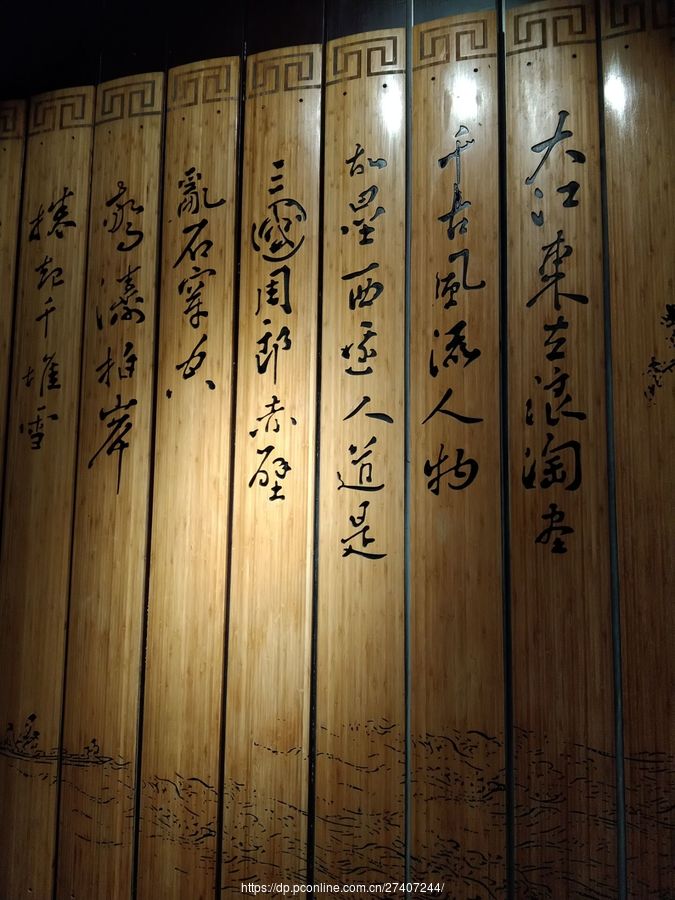 大江東去浪淘盡
千古風流人物
故壘西邊人道是
三國周郎赤壁
亂石穿空
驚濤拍岸
捲起千堆雪
https://dp.pconline.com.cn/27407244/